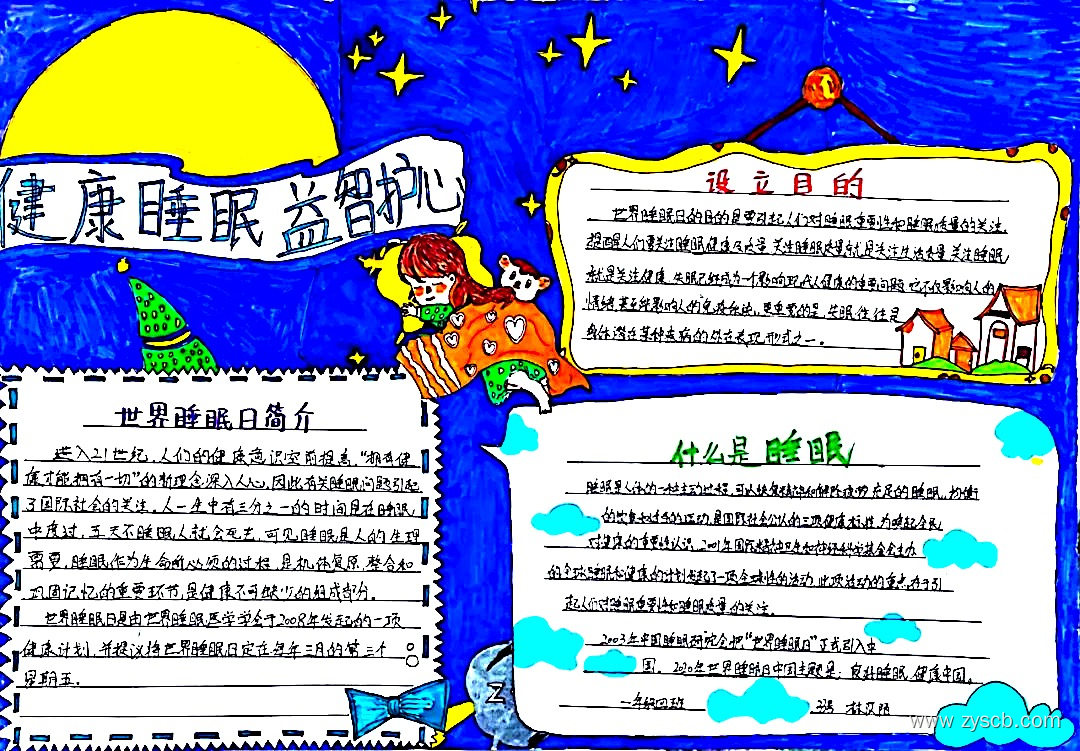 健康睡眠益智护心
设立目的
世界睡眠日的目的是要引起人们对睡眠重要性和睡眠质量的关注,
提醒人们要关注睡眠健康及质量 关注睡眠质量就是关注生活质量 关注睡眠
就是关注健康 失眠已经成为一个影响现代人健康的重要问题 它不仅影响人的
情绪 甚至能影响人的免疫系统 更重要的是 失眠往往是
身体潜在某种疾病的外在表现形式之一。
世界睡眠日简介
进入21世纪,人们的健康意识空前提高,“拥有健
康才能拥有一切”的新理念深入人心,因此有关睡眠问题引起
了国际社会的关注。人一生中有三分之一的时间是在睡眠
中度过,五天不睡眠人就会死去,可见睡眠是人的生理
需要,睡眠作为生命所必须的过程,是机体复原 整合和
巩固记忆的重要环节,是健康不可缺少的组成部分。
世界睡眠日是由世界睡眠医学学会于2008年发起的一项
健康计划,并提议将世界睡眠日定在每年三月的第三个
星期五.
什么是睡眠
睡眠是人体的一种主动过程,可以恢复精神和解除疲劳 充足的睡眠、均衡
的饮食和适当的运动,是国际社会公认的三项健康标准,为唤起全民
对健康的重要性认识,2001年国际精神卫生和神经科学基金会主办
的全球睡眠和健康的计划发起了一项全球性的活动,此项活动的重点在于引
起人们对睡眠重要性和睡眠质量的关注.
2003年中国睡眠研究会把“世界睡眠日”正式引入中
国。2020年世界睡眠日中国主题是:良好睡眠 健康中国。
一年级四班 33号 林
Z
www.zyscb.com